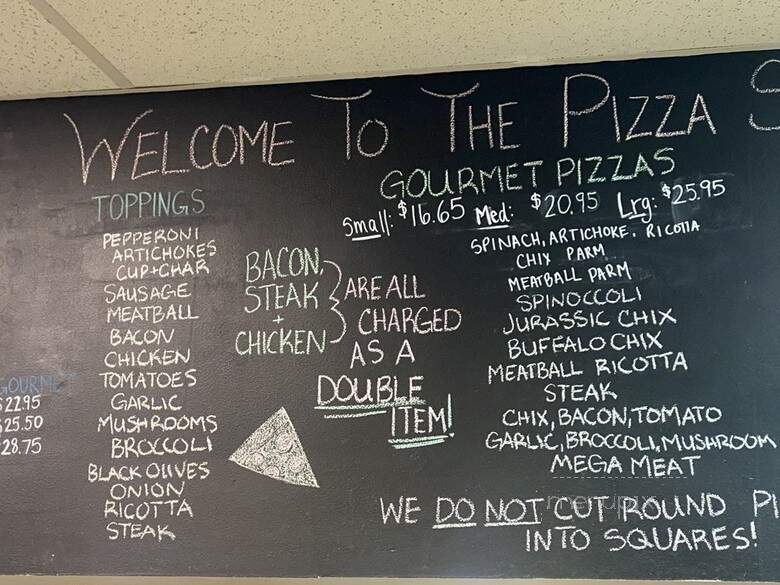 WELCOME TO THE PIZZA
TOPPINGS
PEPPERONI
ARTICHOKES
CUP+CHAR
SAUSAGE
MEATBALL
BACON
CHICKEN
TOMATOES
GARLIC
MUSHROOMS
BROCCOLI
BLACK OLIVES
ONION
RICOTTA
STEAK
BACON,
STEAK
+
CHICKEN
ARE ALL
CHARGED
AS A
DOUBLE
ITEM!
GOURMET
22.95
25.50
28.75
GOURMET PIZZAS
Small: $16.65 Med: $20.95 Lrg: $25.95
SPINACH, ARTICHOKE, RICOTTA
CHIX PARM
MEATBALL PARM
SPINOCCOLI
JURASSIC CHIX
BUFFALO CHIX
MEATBALL RICOTTA
STEAK
CHIX, BACON, TOMATO
GARLIC, BROCCOLI, MUSHROOM
MEGA MEAT
menupix
WE DO NOT CUT ROUND PI
INTO SQUARES!